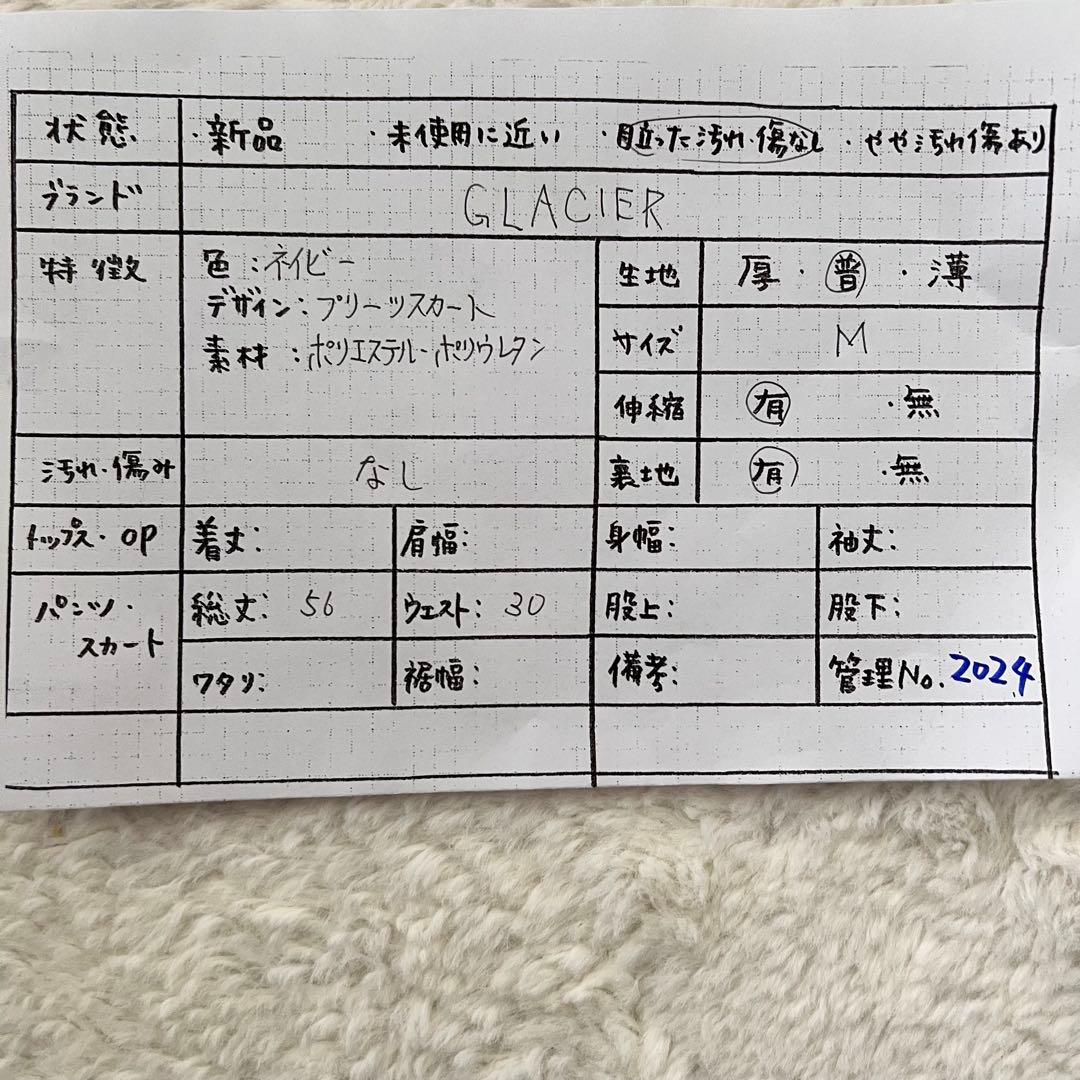 状態 ・新品 ・未使用に近い ・目立った汚れ・傷なし ・やや汚れ傷あり
ブランド GLACIER
特徴 色:ネイビー
デザイン:プリーツスカート
素材:ポリエステル・ポリウレタン
生地 厚・普・薄
サイズ M
伸縮 有 ・無
汚れ・傷み なし
裏地 有 ・無
トップス・OP 着丈: 肩幅: 身幅: 袖丈:
パンツ・スカート 総丈: 56 ウエスト: 30 股上: 股下:
ワタリ: 裾幅: 備考: 管理No. 2024